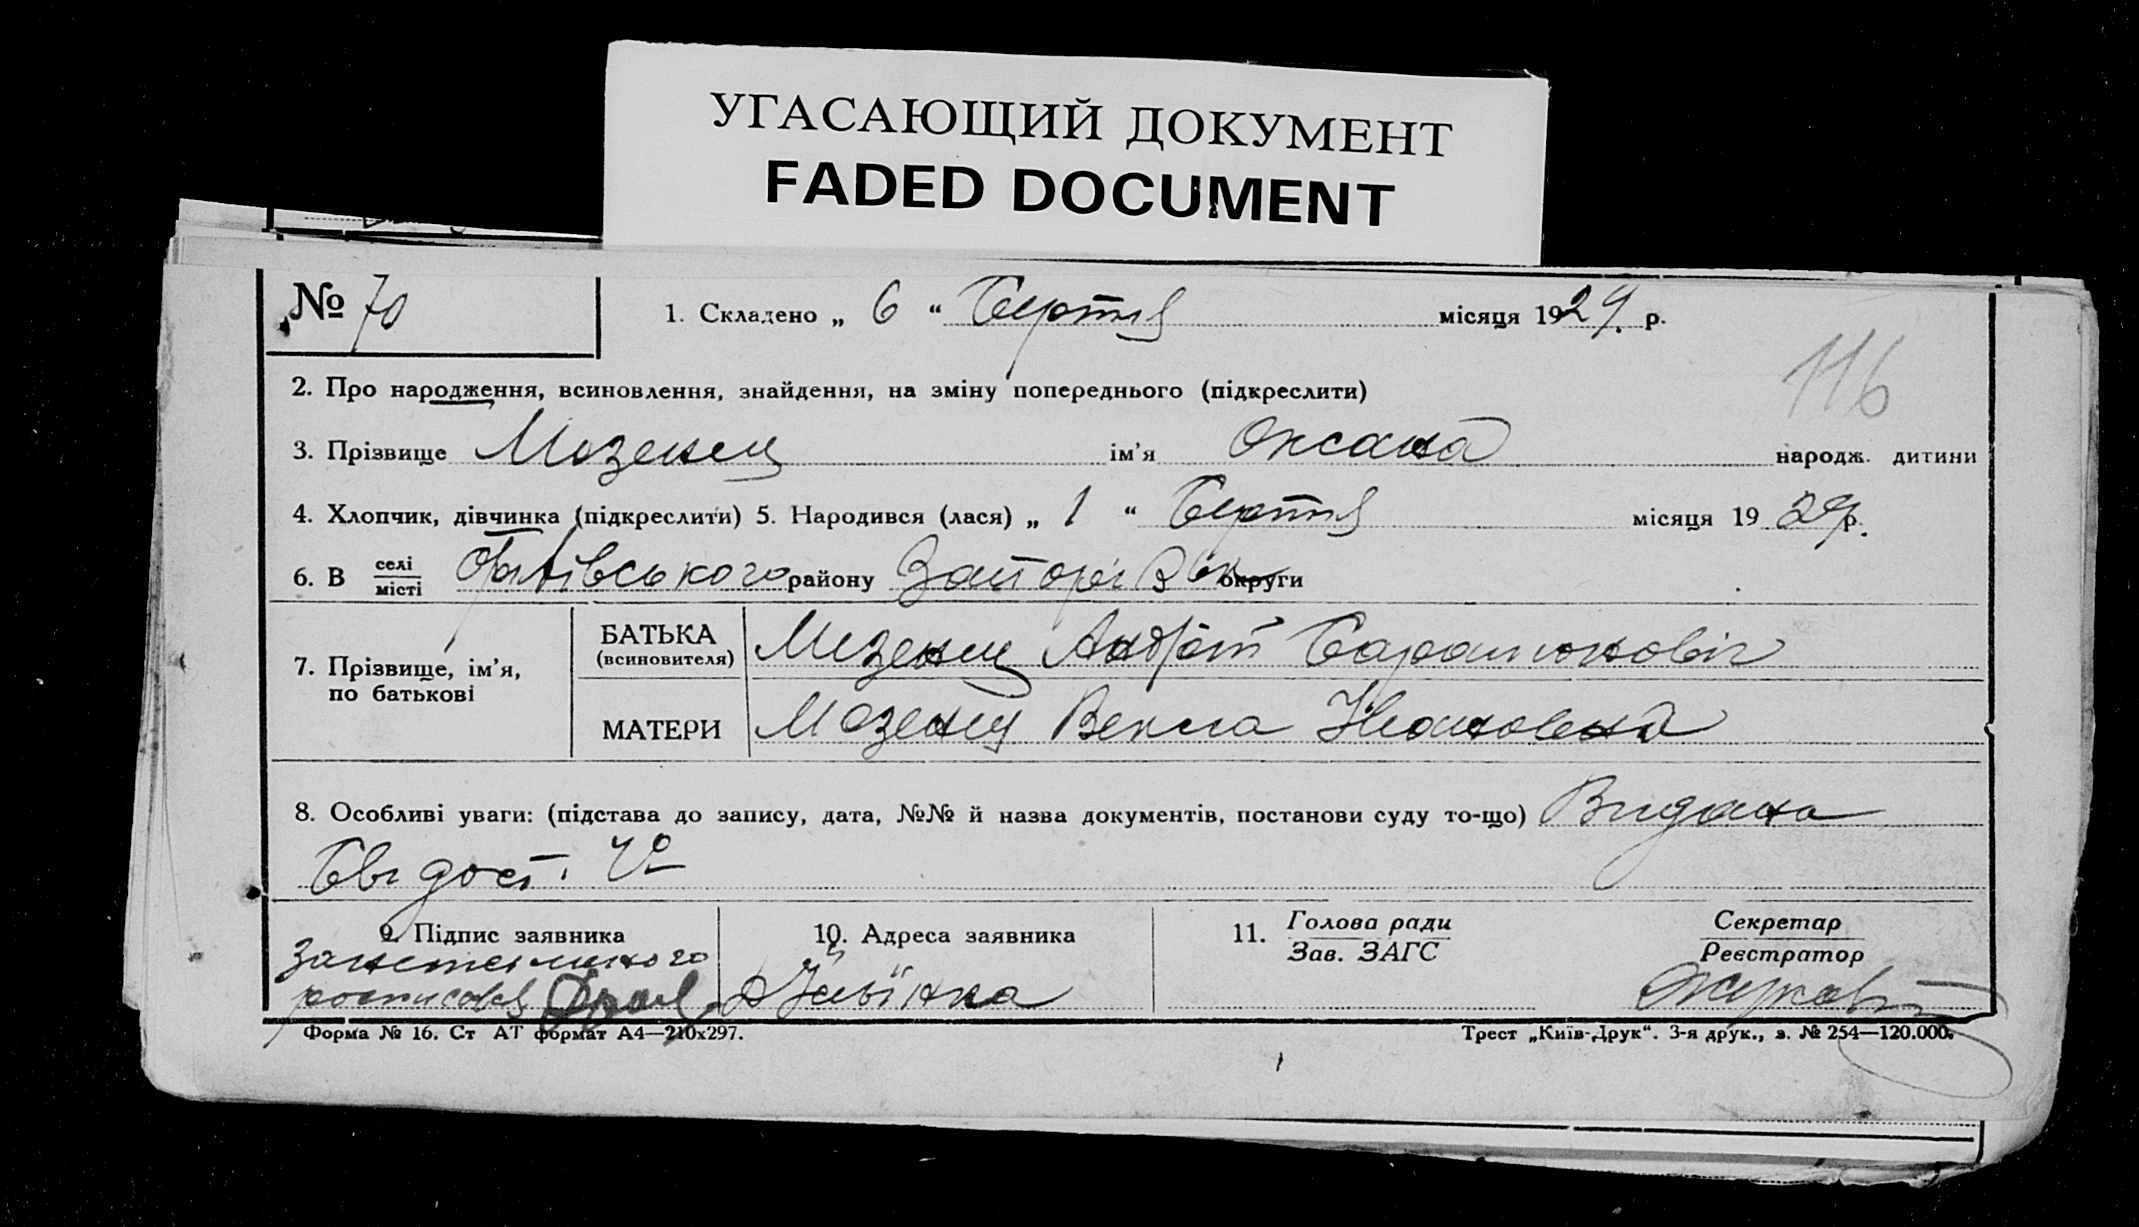 УГАСАЮЩИЙ ДОКУМЕНТ
FADED DOCUMENT
№ 70
1. Складено „ 6 “ Серпня місяця 1929. р.
116
2. Про народження, всиновлення, знайдення, на зміну попереднього (підкреслити)
3. Прізвище Мозенец ім’я Оксана народж. дитини
4. Хлопчик, дівчинка (підкреслити) 5. Народився (лася) „ 1 “ Серпня місяця 1929 р.
6. В селі місті району округи
7. Прізвище, ім’я, по батькові
БАТЬКА (всиновителя) Мозенец
МАТЕРИ Мозенец Векла
8. Особливі уваги: (підстава до запису, дата, №№ й назва документів, постанови суду то-що) Видана
Свідост. №
9. Підпис заявника
10. Адреса заявника
11. Голова ради
Зав. ЗАГС
Секретар
Реєстратор
Форма № 16. Ст АТ формат А4—210х297.
Трест „Київ-Друк“. 3-я друк., з. № 254—120.000.